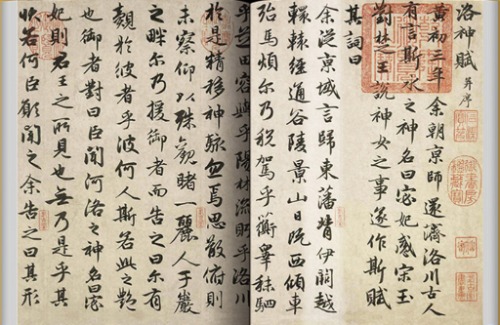 洛神賦 并序
黃初三年余朝京師還濟洛川古人
有言斯水之神名曰宓妃感宋玉
對楚王說神女之事遂作斯賦
其詞曰
余從京域言歸東藩背伊闕越
轘轅經通谷陵景山日既西傾車
殆馬煩尔乃稅駕乎蘅皋秣駟
乎芝田容與乎陽林流眄乎洛川
於是精移神駭忽焉思散俯則
未察仰以殊觀睹一麗人于巖
之畔尔乃援御者而告之曰尔有
覿於彼者乎彼何人斯若此之豔
也御者對曰臣聞河洛之神名曰宓
妃則君王之所見也無乃是乎其
狀若何臣願聞之余告之曰其形